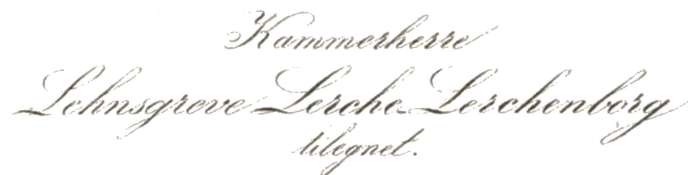 Kammerherre
Lehnsgreve Lerche-Lerchenborg
tilegnet.